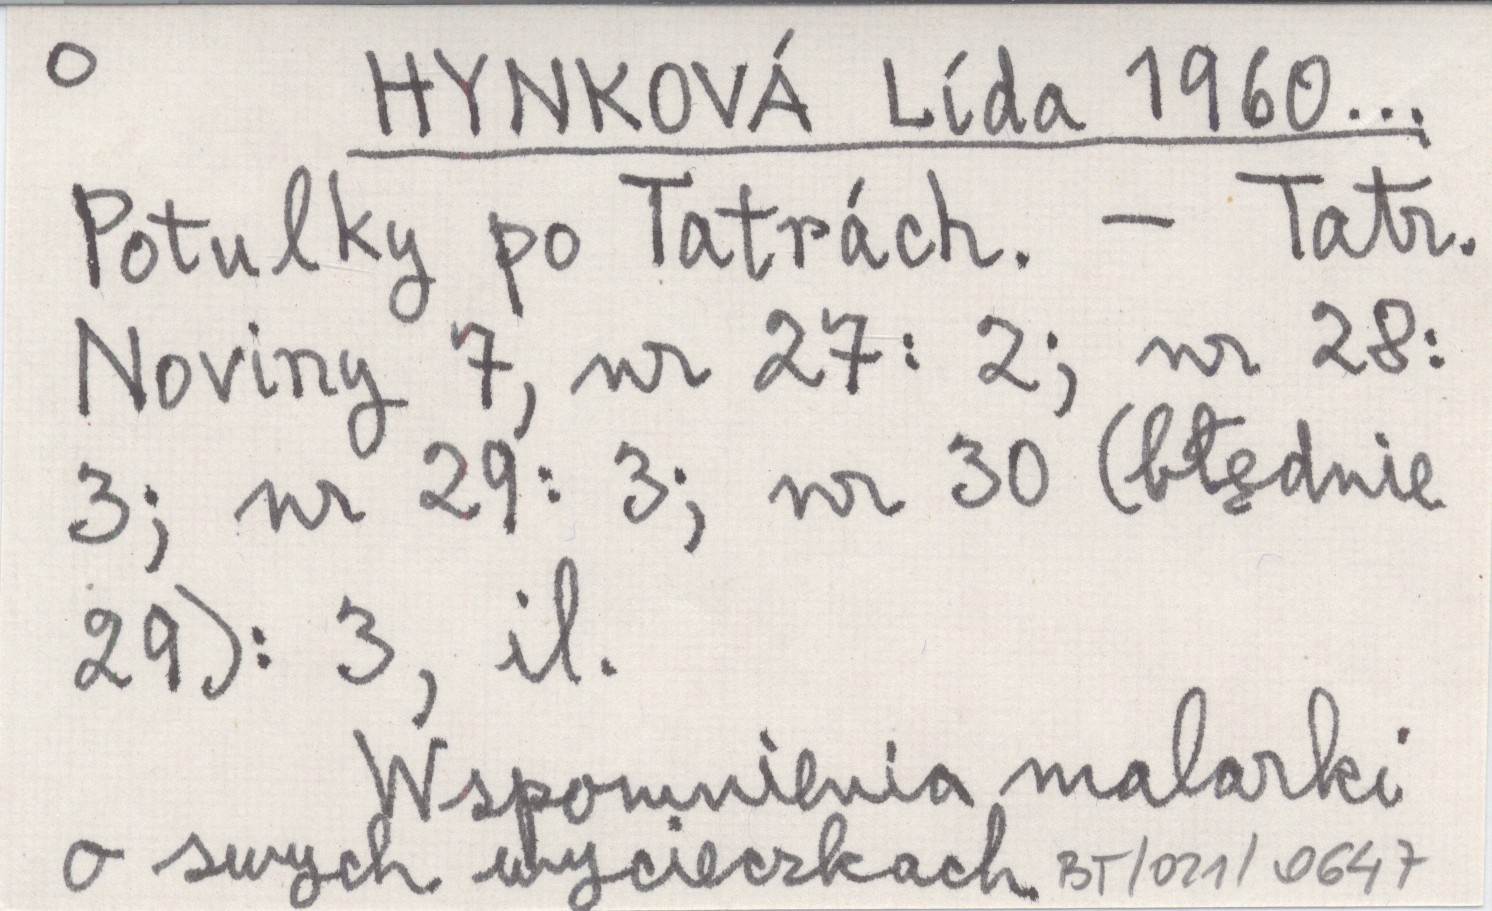 O HYNKOVÁ Lída 1960...
Potulky po Tatrách. — Tatr.
Noviny 7, nr 27: 2; nr 28:
3; nr 29: 3; nr 30 (błędnie
29): 3, il.
Wspomnienia malarki
o swych wycieczkach. BT/021/0647